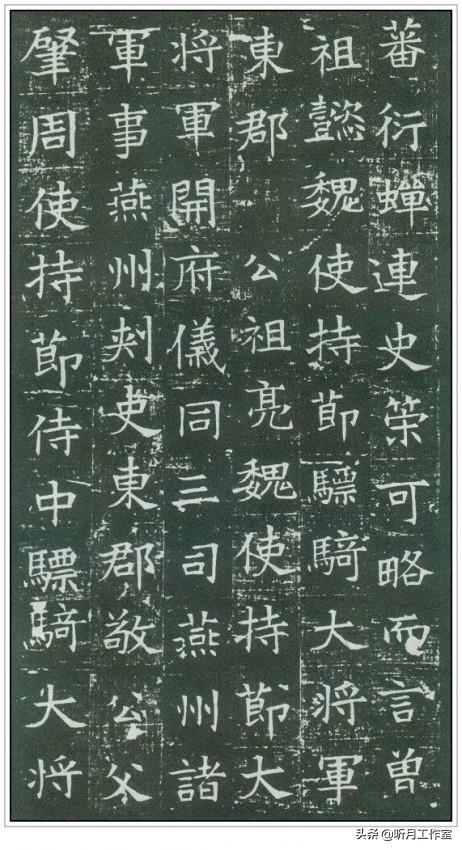 蕃衍蟬連史策可略而言曾
祖懿魏使持節驃騎大将軍
東郡 公祖亮魏使持節大
将軍開府儀同三司燕州諸
軍事燕州刺史東郡敬公父
肇周使持節侍中驃騎大将
头条 @听月工作室